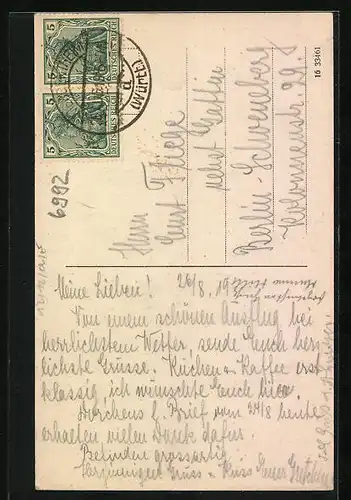 5
DEUTSCHES REICH
5
DEUTSCHES REICH
(Württ.)
16 33461
6992
Herrn
Ernst Fliege
nebst Gattin
Berlin-Schöneberg
Kolonnenstr. 29.I
Meine Lieben! 26/8.
Von einem schönen Ausflug bei
herrlichstem Wetter, sende Euch herz
lichste Grüsse. Kuchen & Kaffee erst
klassig, ich wünschte Euch hier.
Brief vom 24/8 heute
erhalten vielen Dank dafür.
Befinden grossartig
Gruss & Kuss Euer